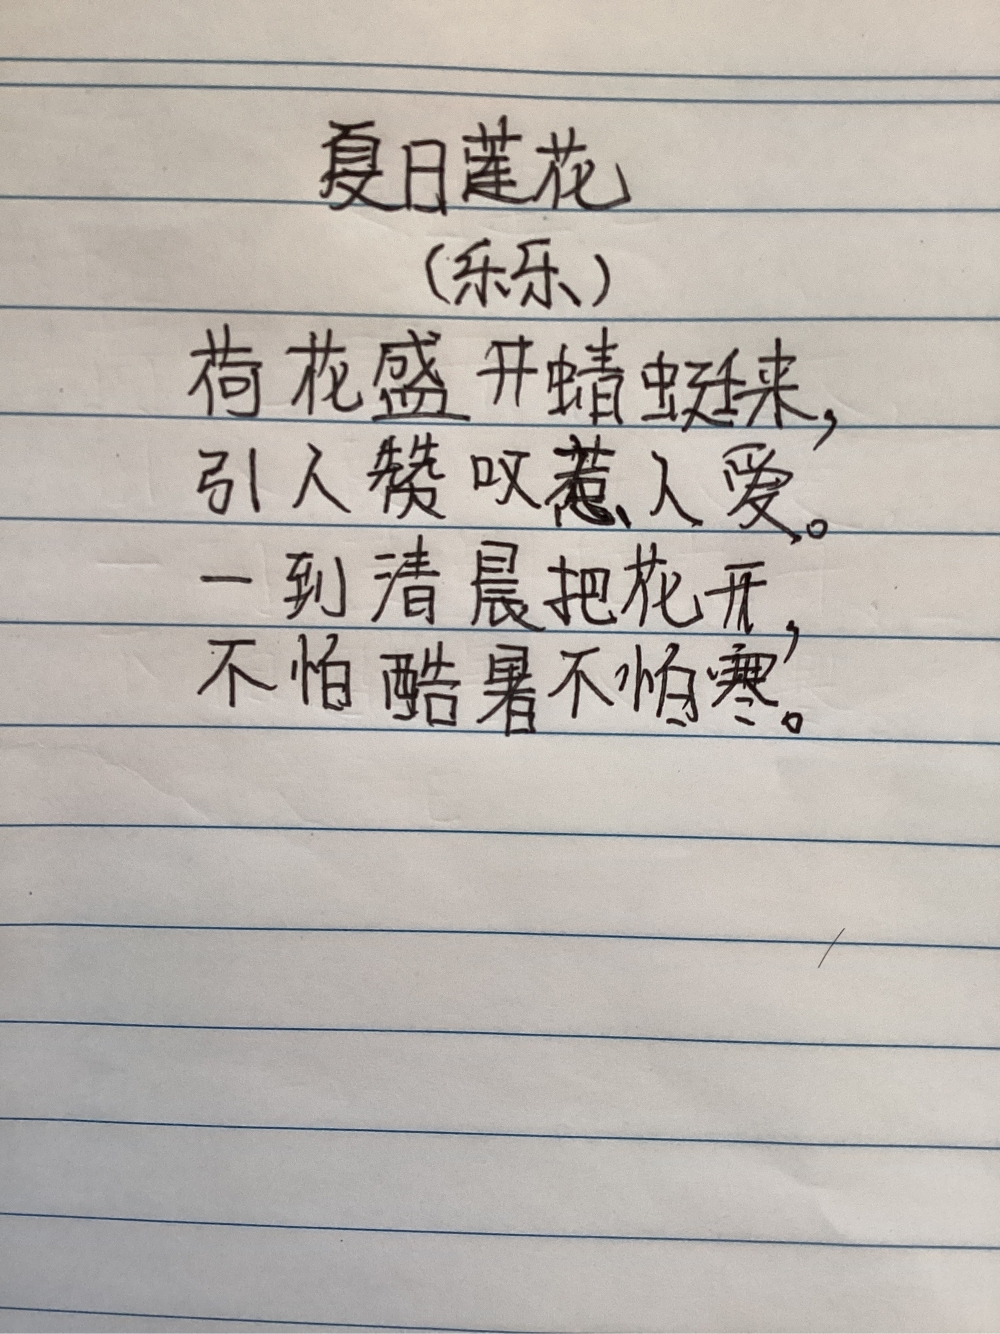 夏日莲花
（乐乐）
荷花盛开蜻蜓来，
引人赞叹惹人爱。
一到清晨把花开，
不怕酷暑不怕寒。